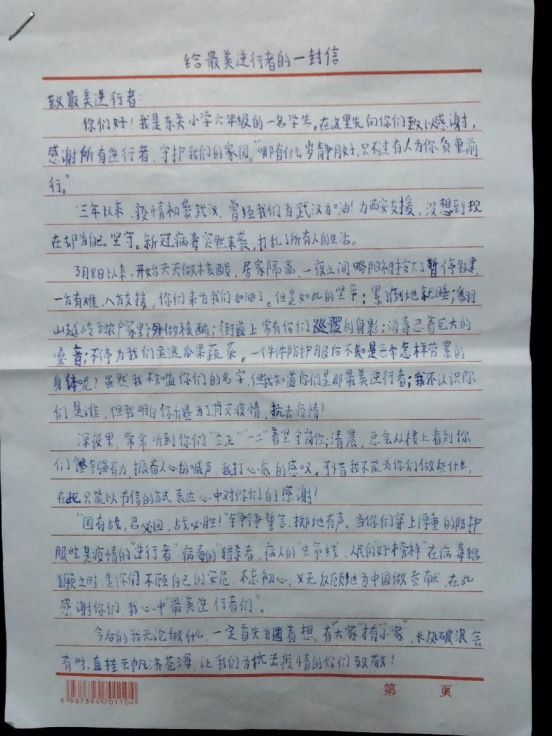 给最美逆行者的一封信
致最美逆行者:
你们好!我是东关小学六年级的一名学生,在这里先向你们致以感谢,
感谢所有逆行者,守护我们的家园。"哪有什么岁月静好,只不过有人为你负重前
行。"
三年以来,疫情初袭武汉,曾经我们为武汉加油!为西安支援,没想到现
在却为自己坚守。新冠病毒突然来袭,打乱了所有人的生活。
3月8日以来,开始天天做核酸,居家隔离,一夜之间略阳初持大了暂停键,
一方有难,八方支援,你们来为我们加油了。但是如此的坚辛;累倒地就睡;翻
山越岭到农户家野外做核酸;街道上常有你们巡逻的身影;消毒还有巨大的
噪音;不停为我们运送瓜果蔬菜。一件件防护服后不知是一个怎样劳累的
身体呢?虽然我不知道你们的名字,但我知道你们是那最美逆行者;我不认识你
们是谁,但我明白你们是为了消灭疫情,抗击疫情!
深夜里,常常听到你们"立正""一二"着坚守岗位;清晨,总会从楼上看到你
们整齐有力,振奋人心的喊声,我打心底的感叹。可惜我不能为你们做些什么,
在此只能以书信的方式表达心中对你们的感谢!
"国有战,召必回,战必胜!"铮铮誓言,掷地有声。当你们穿上厚重的防护
服时是疫情的"逆行者"病毒的"猎毒者,病人的"生命线,人民的"好榜样"在病毒猖
獗之时,是你们不顾自己的安危,不忘初心,义无反顾地为中国做贡献,在此
感谢你们,我心中"最美逆行者们"。
今后的我无论做什么,一定首先为国着想,有"大家"才有"小家",长风破浪会
有时,直挂云帆济沧海,让我们为抗击疫情的你们致敬!
第 页